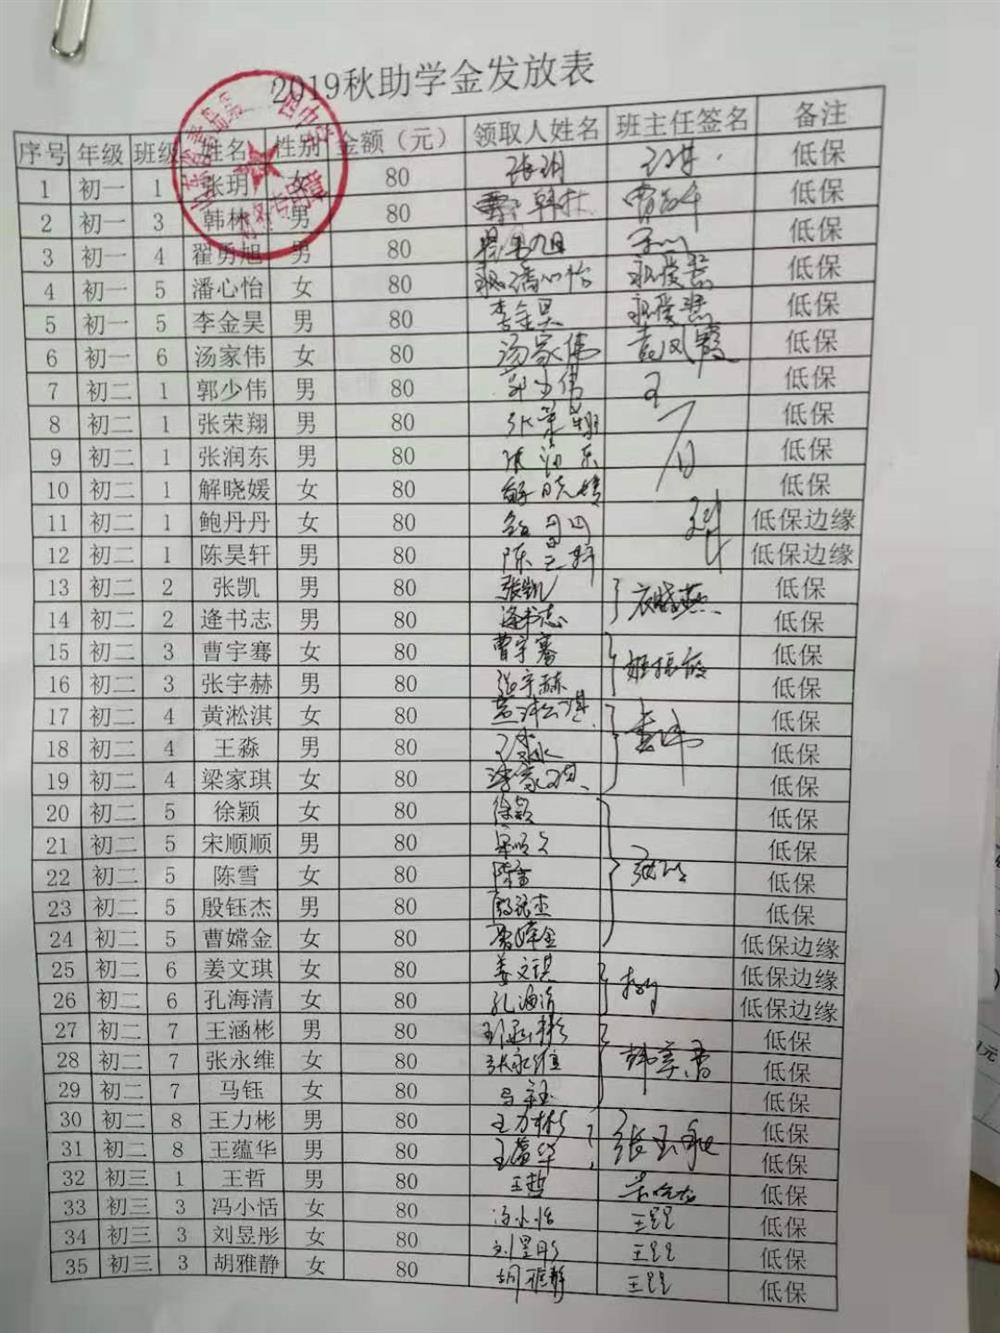 2019秋助学金发放表
序号 年级 班级 姓名 性别 金额（元） 领取人姓名 班主任签名 备注
1 初一 1 张玥 女 80 张玥 低保
2 初一 3 韩林 男 80 韩林 低保
3 初一 4 翟勇旭 男 80 低保
4 初一 5 潘心怡 女 80 潘心怡 低保
5 初一 5 李金昊 男 80 李金昊 低保
6 初一 6 汤家伟 女 80 汤家伟 袁凤霞 低保
7 初二 1 郭少伟 男 80 低保
8 初二 1 张荣翔 男 80 张荣翔 低保
9 初二 1 张润东 男 80 张润东 低保
10 初二 1 解晓媛 女 80 低保
11 初二 1 鲍丹丹 女 80 低保边缘
12 初二 1 陈昊轩 男 80 陈昊轩 低保边缘
13 初二 2 张凯 男 80 张凯 低保
14 初二 2 逄书志 男 80 逄书志 低保
15 初二 3 曹宇骞 女 80 曹宇骞 低保
16 初二 3 张宇赫 男 80 张宇赫 低保
17 初二 4 黄淞淇 女 80 黄淞淇 低保
18 初二 4 王淼 男 80 王淼 低保
19 初二 4 梁家琪 女 80 低保
20 初二 5 徐颖 女 80 徐颖 低保
21 初二 5 宋顺顺 男 80 低保
22 初二 5 陈雪 女 80 陈雪 低保
23 初二 5 殷钰杰 男 80 殷钰杰 低保
24 初二 5 曹嫦金 女 80 低保边缘
25 初二 6 姜文琪 女 80 姜文琪 低保边缘
26 初二 6 孔海清 女 80 孔海清 低保边缘
27 初二 7 王涵彬 男 80 王涵彬 低保
28 初二 7 张永维 女 80 张永维 低保
29 初二 7 马钰 女 80 马钰 低保
30 初二 8 王力彬 男 80 王力彬 低保
31 初二 8 王蕴华 男 80 王蕴华 低保
32 初三 1 王哲 男 80 王哲 低保
33 初三 3 冯小恬 女 80 冯小恬 低保
34 初三 3 刘昱彤 女 80 刘昱彤 低保
35 初三 3 胡雅静 女 80 胡雅静 低保